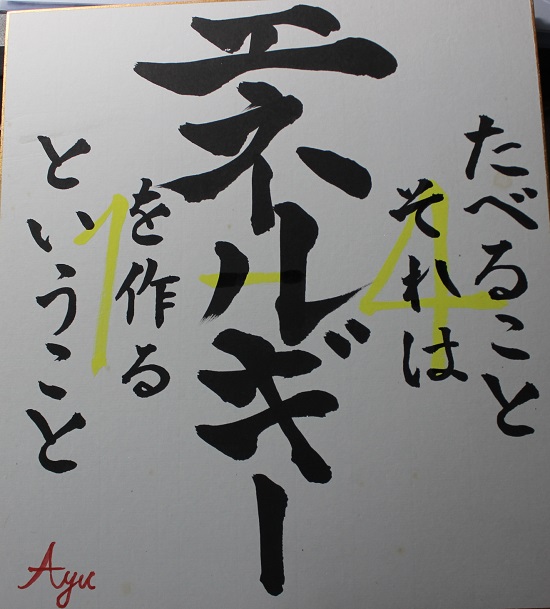 たべること
それは
エネルギー
を作る
ということ
1-4
Ayu